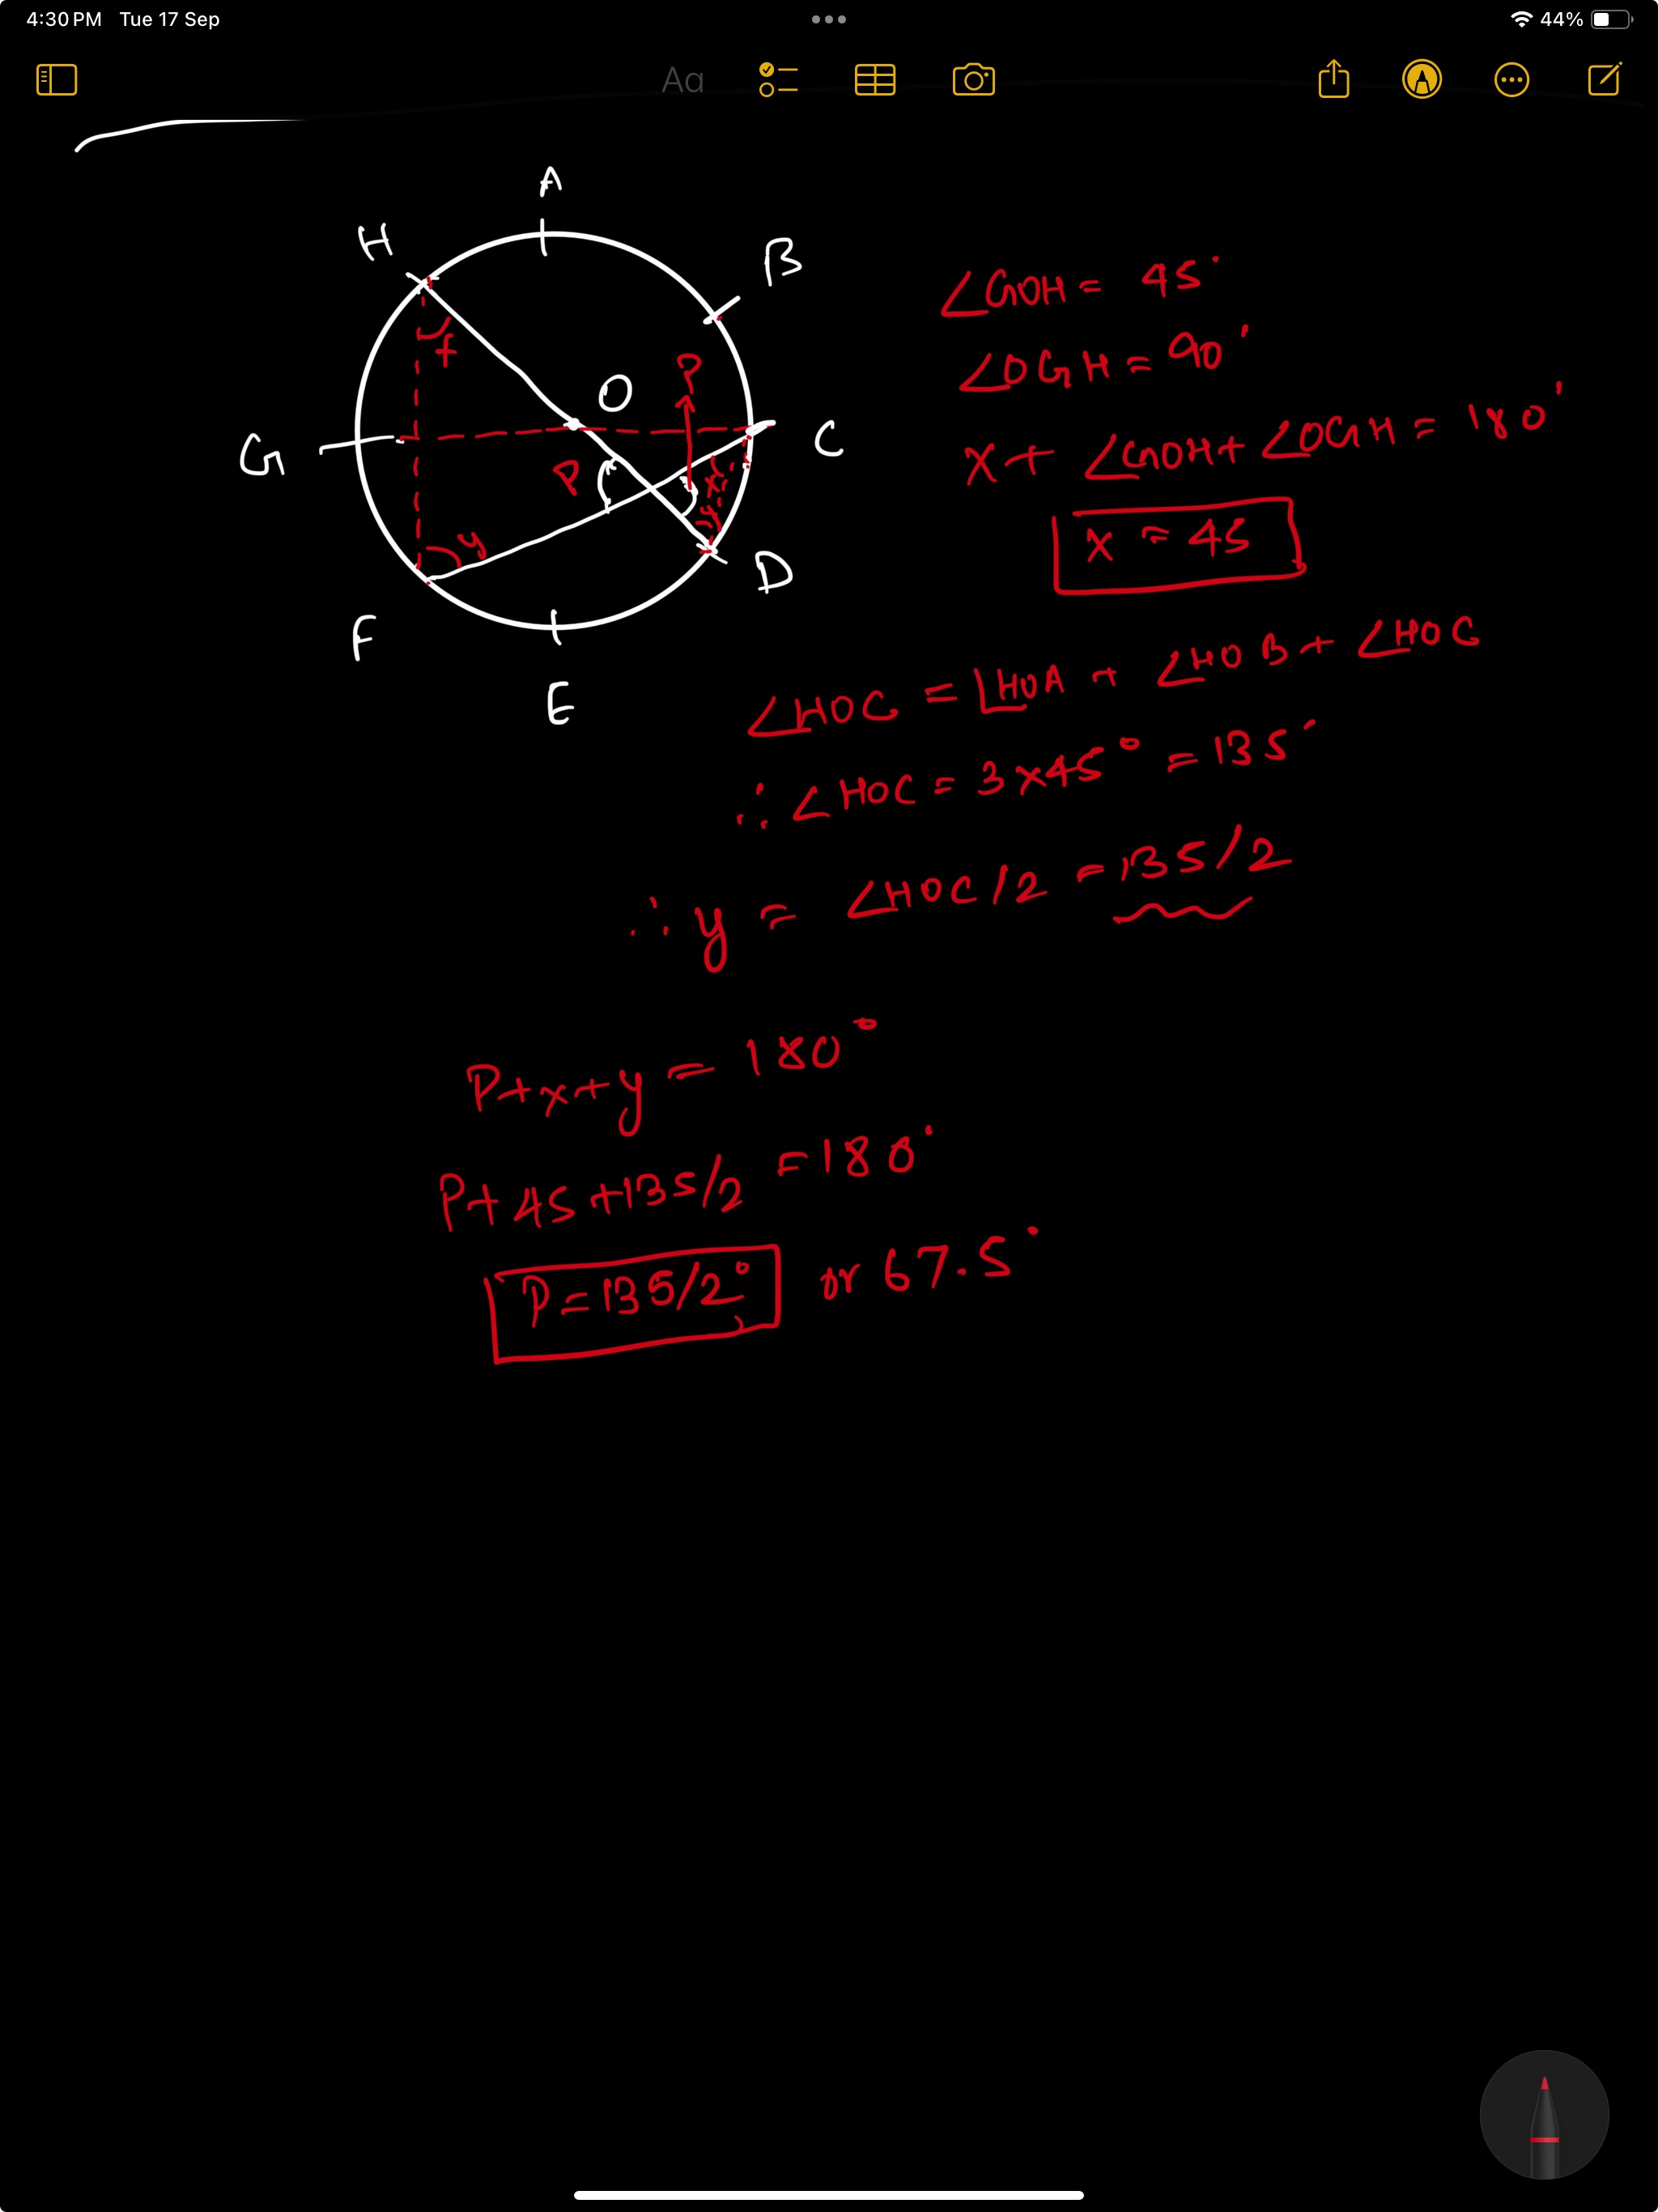 4:30 PM Tue 17 Sep
44%
Aa
A
H
B
O
P
f
G
C
P
x
y
y
D
F
E
∠GOH = 45°
∠OGH = 90°
x + ∠GOH + ∠OGH = 180°
x = 45
∠HOC = ∠HOA + ∠HOB + ∠HOC
∴ ∠HOC = 3 x 45° = 135°
∴ y = ∠HOC/2 = 135/2
P + x + y = 180°
P + 45 + 135/2 = 180°
P = 135/2° or 67.5°